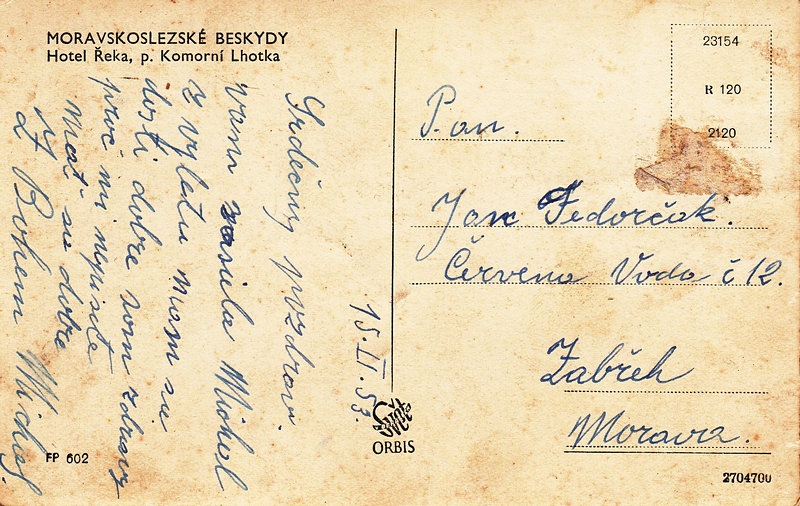 MORAVSKOSLEZSKÉ BESKYDY
Hotel Řeka, p. Komorní Lhotka
15.II.53.
Srdečny pozdrav.
vam zasila Michal
z vyletu mam sa
dosti dobre som zdravy
proč mi nepisete
mať sa dobre
Bohem Michal
FP 602
ORBIS
23154
R 120
2120
Pan.
Jan Fedorčak.
Červena Voda č 12.
Zabřeh
Morava.
2704700